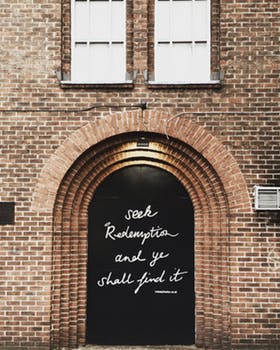 seek
Redemption
and ye
shall find it